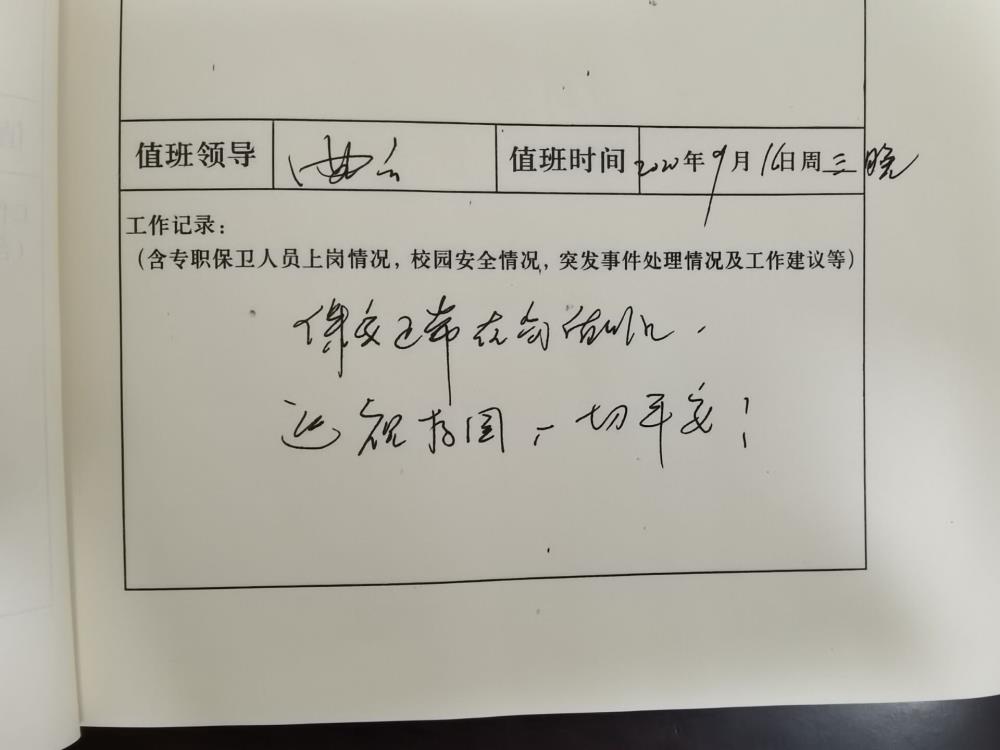 值班领导 值班时间 2020年9月16日周三晚
工作记录：
（含专职保卫人员上岗情况，校园安全情况，突发事件处理情况及工作建议等）
保安正常在岗值班，
巡视校园，一切平安！